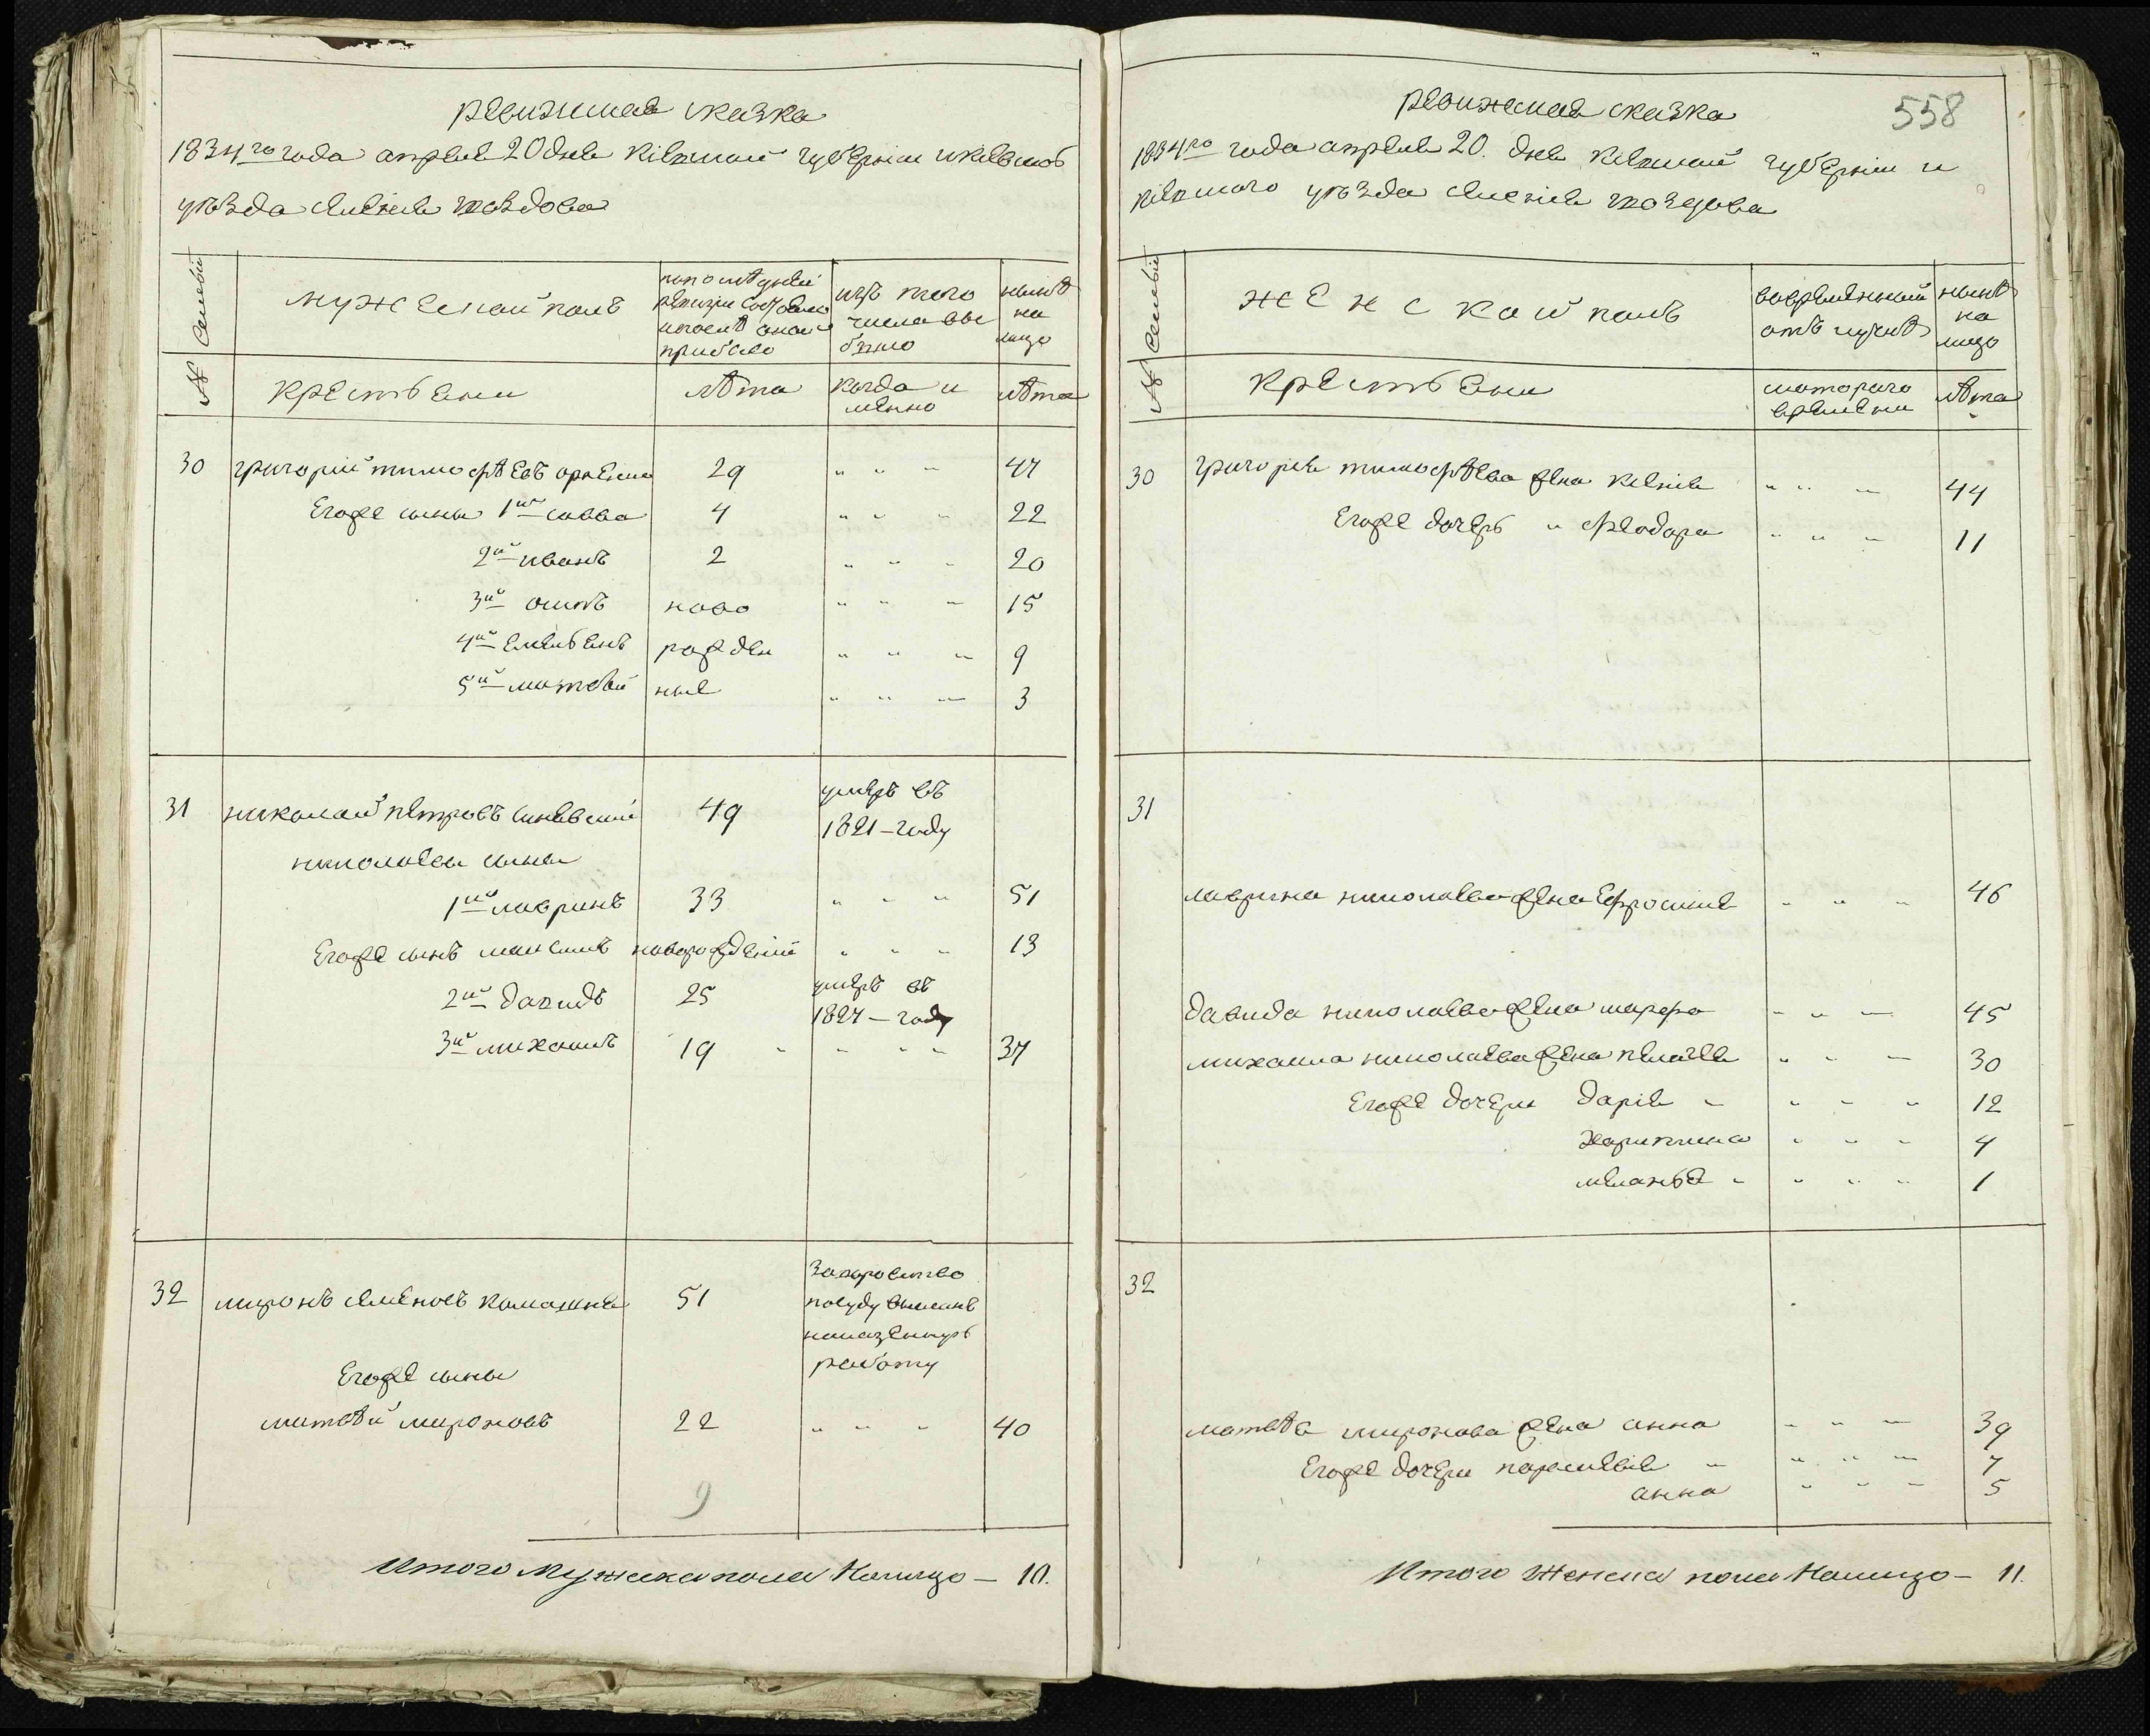 ревижская сказка
1834го года апреля 20 дня Кіевской губерніи и Кіевскоо
уѣзда селенія гвоздова
№ Семьй
мужескои полъ
по последнѣй ревизіи состояло и после оной прибыло
изъ того числа выбыло
нынѣ на лицо
крестьяни
лѣта
когда и менно
лѣта
30 григорій тимофѣевъ 29 " " " 47
Егоже сыны 1й савва 4 " " " 22
2й иванъ 2 " " " 20
3й осипъ ново " " " 15
4й Емельянъ рожден " " " 9
5й матвѣй ные " " " 3
31 николай петровъ синявский 49 умеръ въ 1821-году
николаевы сыны
1й лавринъ 33 " " " 51
Егоже сынъ максимъ новорожденій " " " 13
2й давидъ 25 умеръ въ 1827-году
3й михаилъ 19 " " " " 37
32 миронъ семеновъ 51 работу
Егоже сыны
матвѣй мироновъ 22 " " " 40
9
Итого Мужеска пола Налицо — 10.
ревижская сказка
558
1834го года апреля 20. дня Кіевской губерніи и
кіевского уѣзда селенія гвоздова
№ Семьй
женскои полъ
вовременной отлучкѣ
нынѣ на лицо
крестьяни
скоторого времени
лѣта
30 григорія тимофѣева жена Ксенія " " " 44
Егоже дочерь " феодора " " " 11
31
лаврина николаева жена Ефросинія " " " 46
давида николаева жена марфа " " " 45
михаила николаева жена пелагея " " " 30
Егоже дочери дарія " " " " 12
Харитина " " " 4
меланья " " " " 1
32
матвѣя миронова жена анна " " " 39
Егоже дочери параскевія " " " " 7
анна " " " 5
Итого Женска пола Налицо — 11.